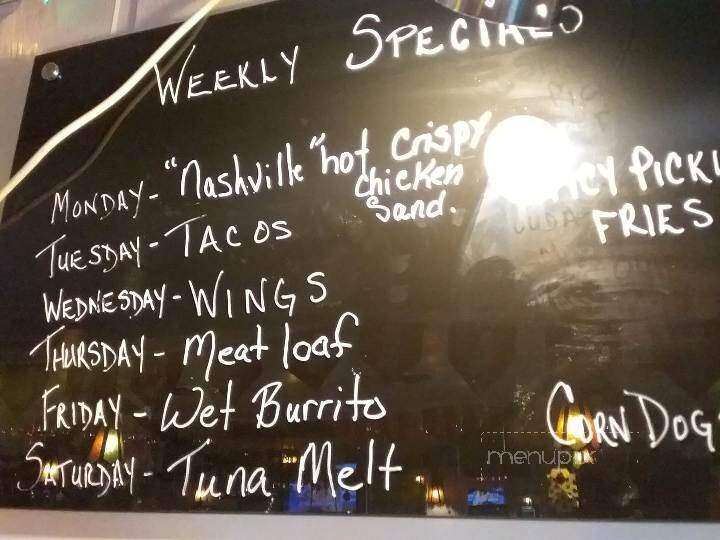 WEEKLY SPECIALS
MONDAY - "Nashville" hot Crispy
Chicken
Sand.
TUESDAY - TACOS
WEDNESDAY - WINGS
THURSDAY - Meat loaf
FRIDAY - Wet Burrito
SATURDAY - Tuna Melt
PICKL
FRIES
CORN DOG
menupix